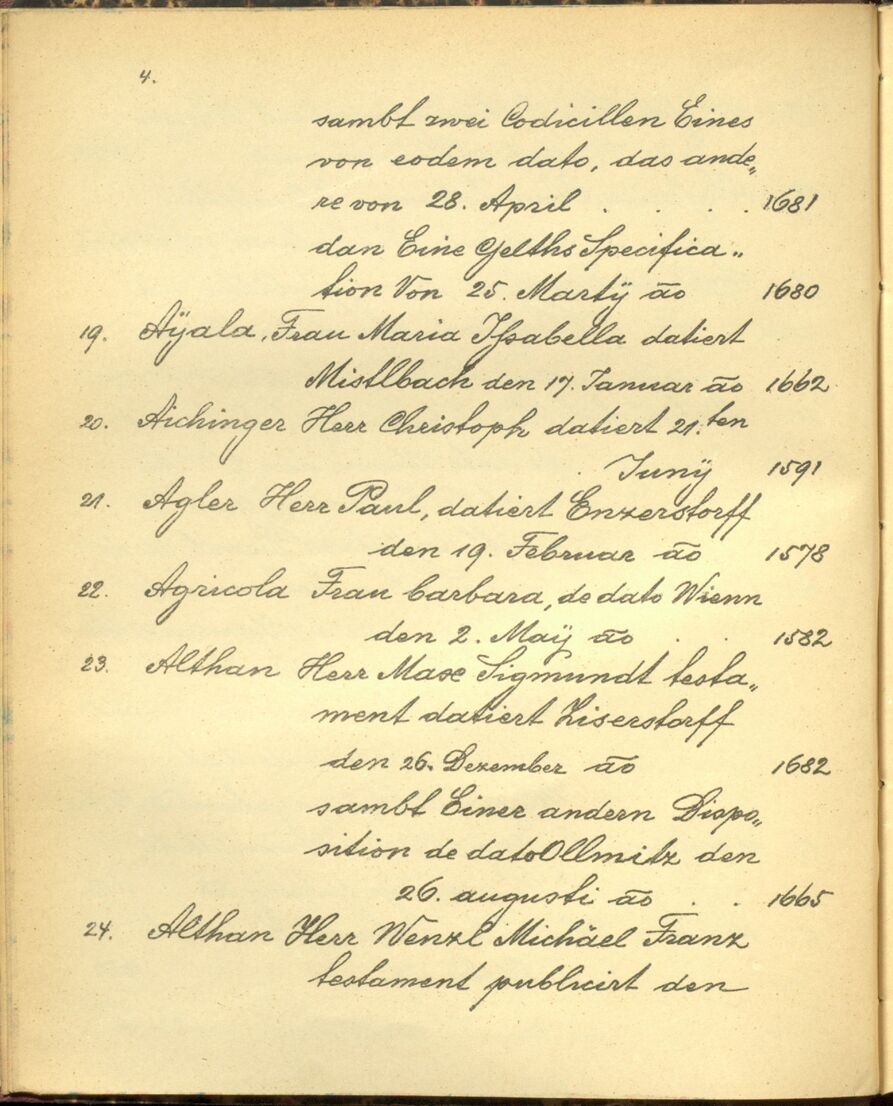 4.
sambt zwei Codicillen Eines
von eodem dato, das ande„
re von 28. April . . . . 1681
dan Eine Gelths Specifica„
tion Von 25. Martÿ āo 1680
19. Aÿala, Frau Maria Issabella datiert
Mistlbach den 17. Januar āo 1662
20. Aichinger Herr Christoph datiert 21.ten
. Junÿ 1591
21. Agler Herr Paul, datiert Enzerstorff
den 19. Februar āo 1578
22. Agricola Frau barbara, de dato Wienn
den 2. Maÿ āo . . 1582
23. Althan Herr Max Sigmundt testa„
ment datiert Ziserstorff
den 26. Dezember āo 1682
sambt Einer andern Dispo„
sition de dato Ollmitz den
26. augusti āo . . 1665
24. Althan Herr Wenzl Michäel Franz
testament publicirt den